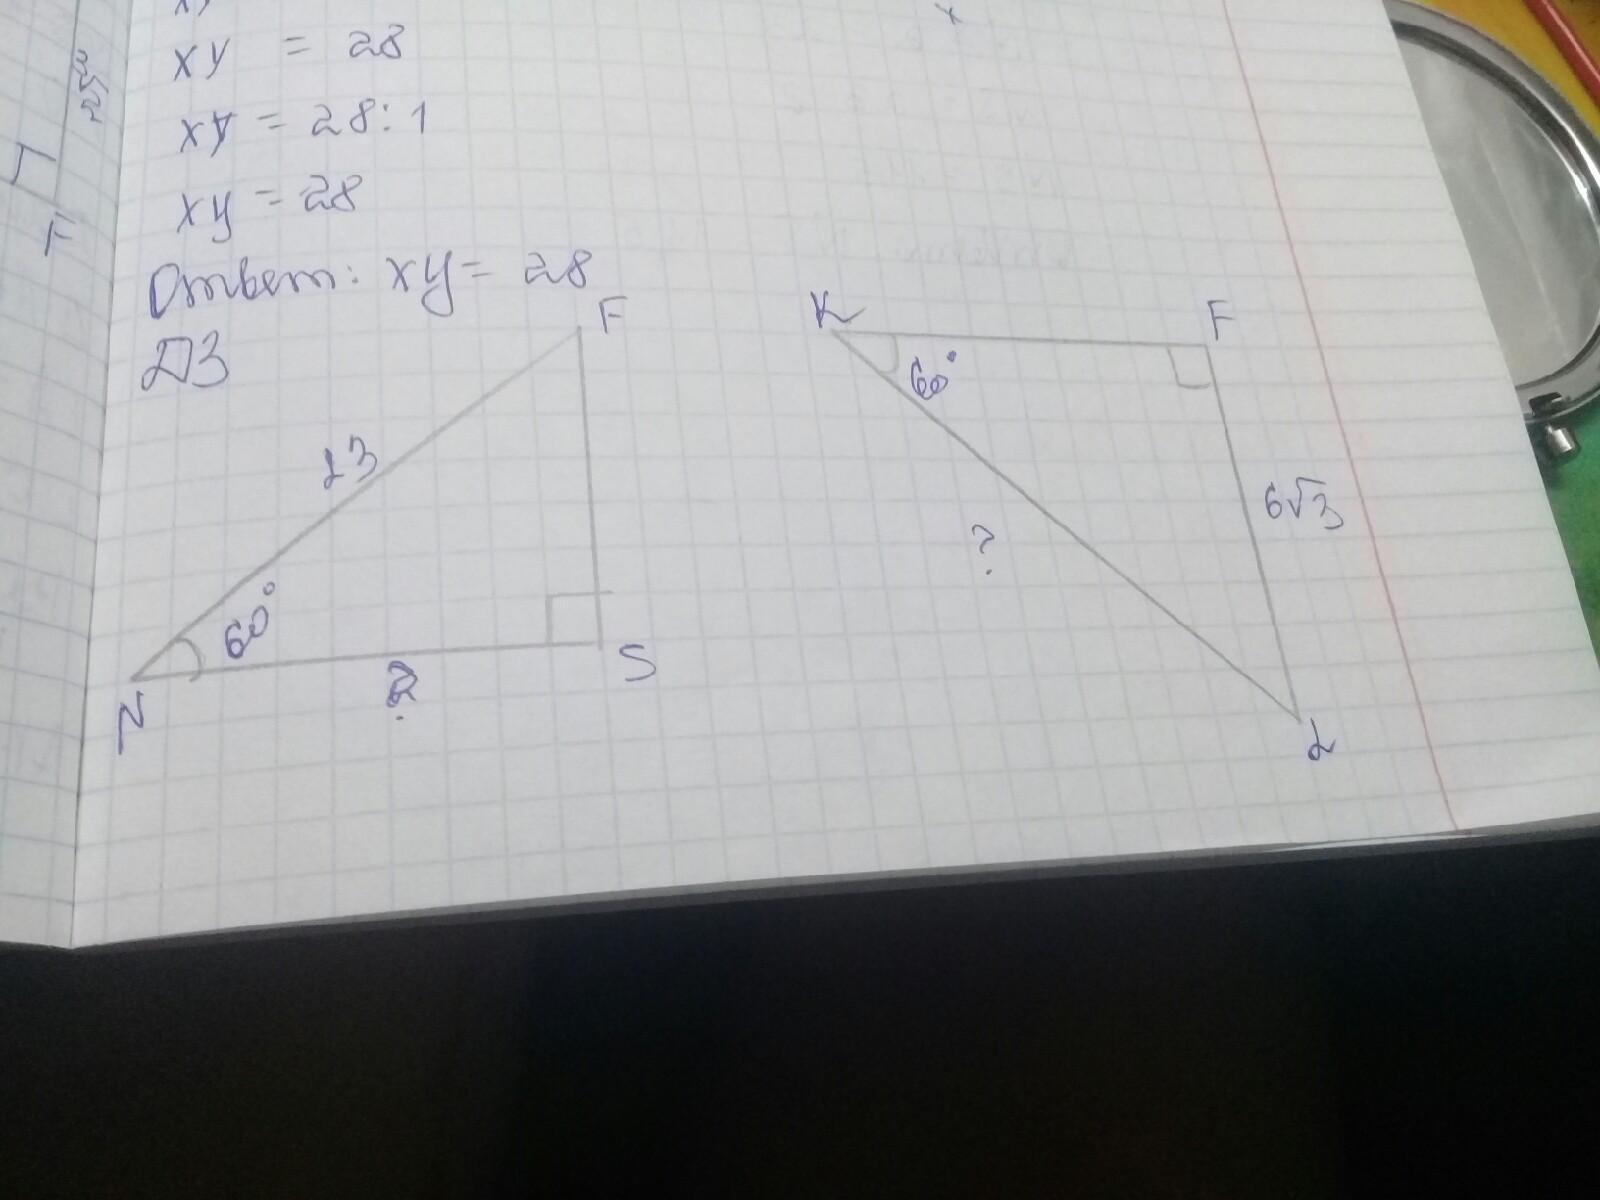 3√2
F
xy = 28
xy = 28:1
xy = 28
Ответ: xy = 28
ДЗ
F
13
60°
N
?
S
K
F
60°
6√3
?
L